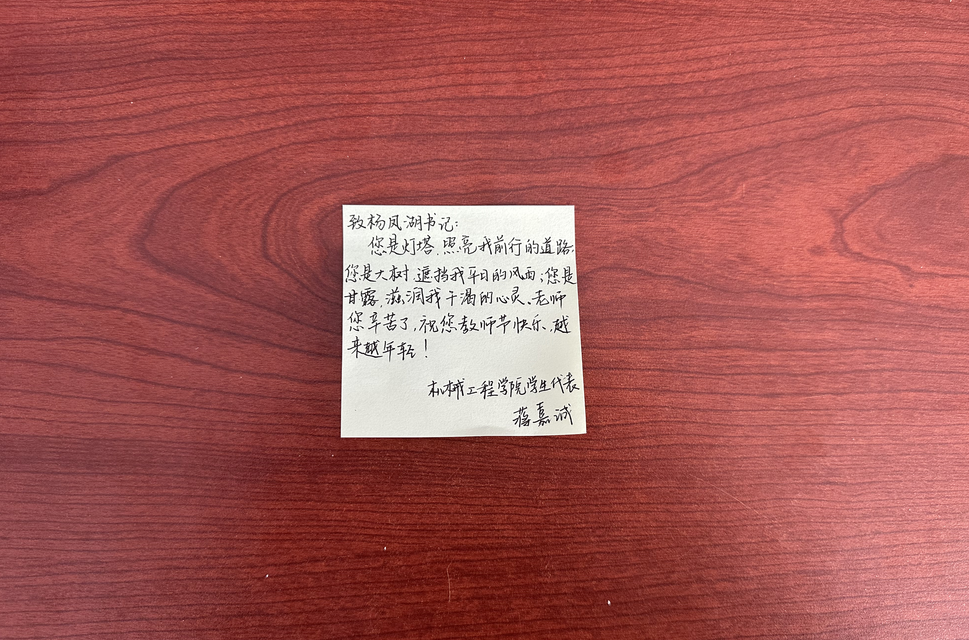 致杨凤湖书记:
您是灯塔,照亮我前行的道路;
您是大树,遮挡我平日的风雨;您是
甘露,滋润我干渴的心灵。老师
您辛苦了,祝您教师节快乐,越
来越年轻!
机械工程学院学生代表
蒋嘉诚